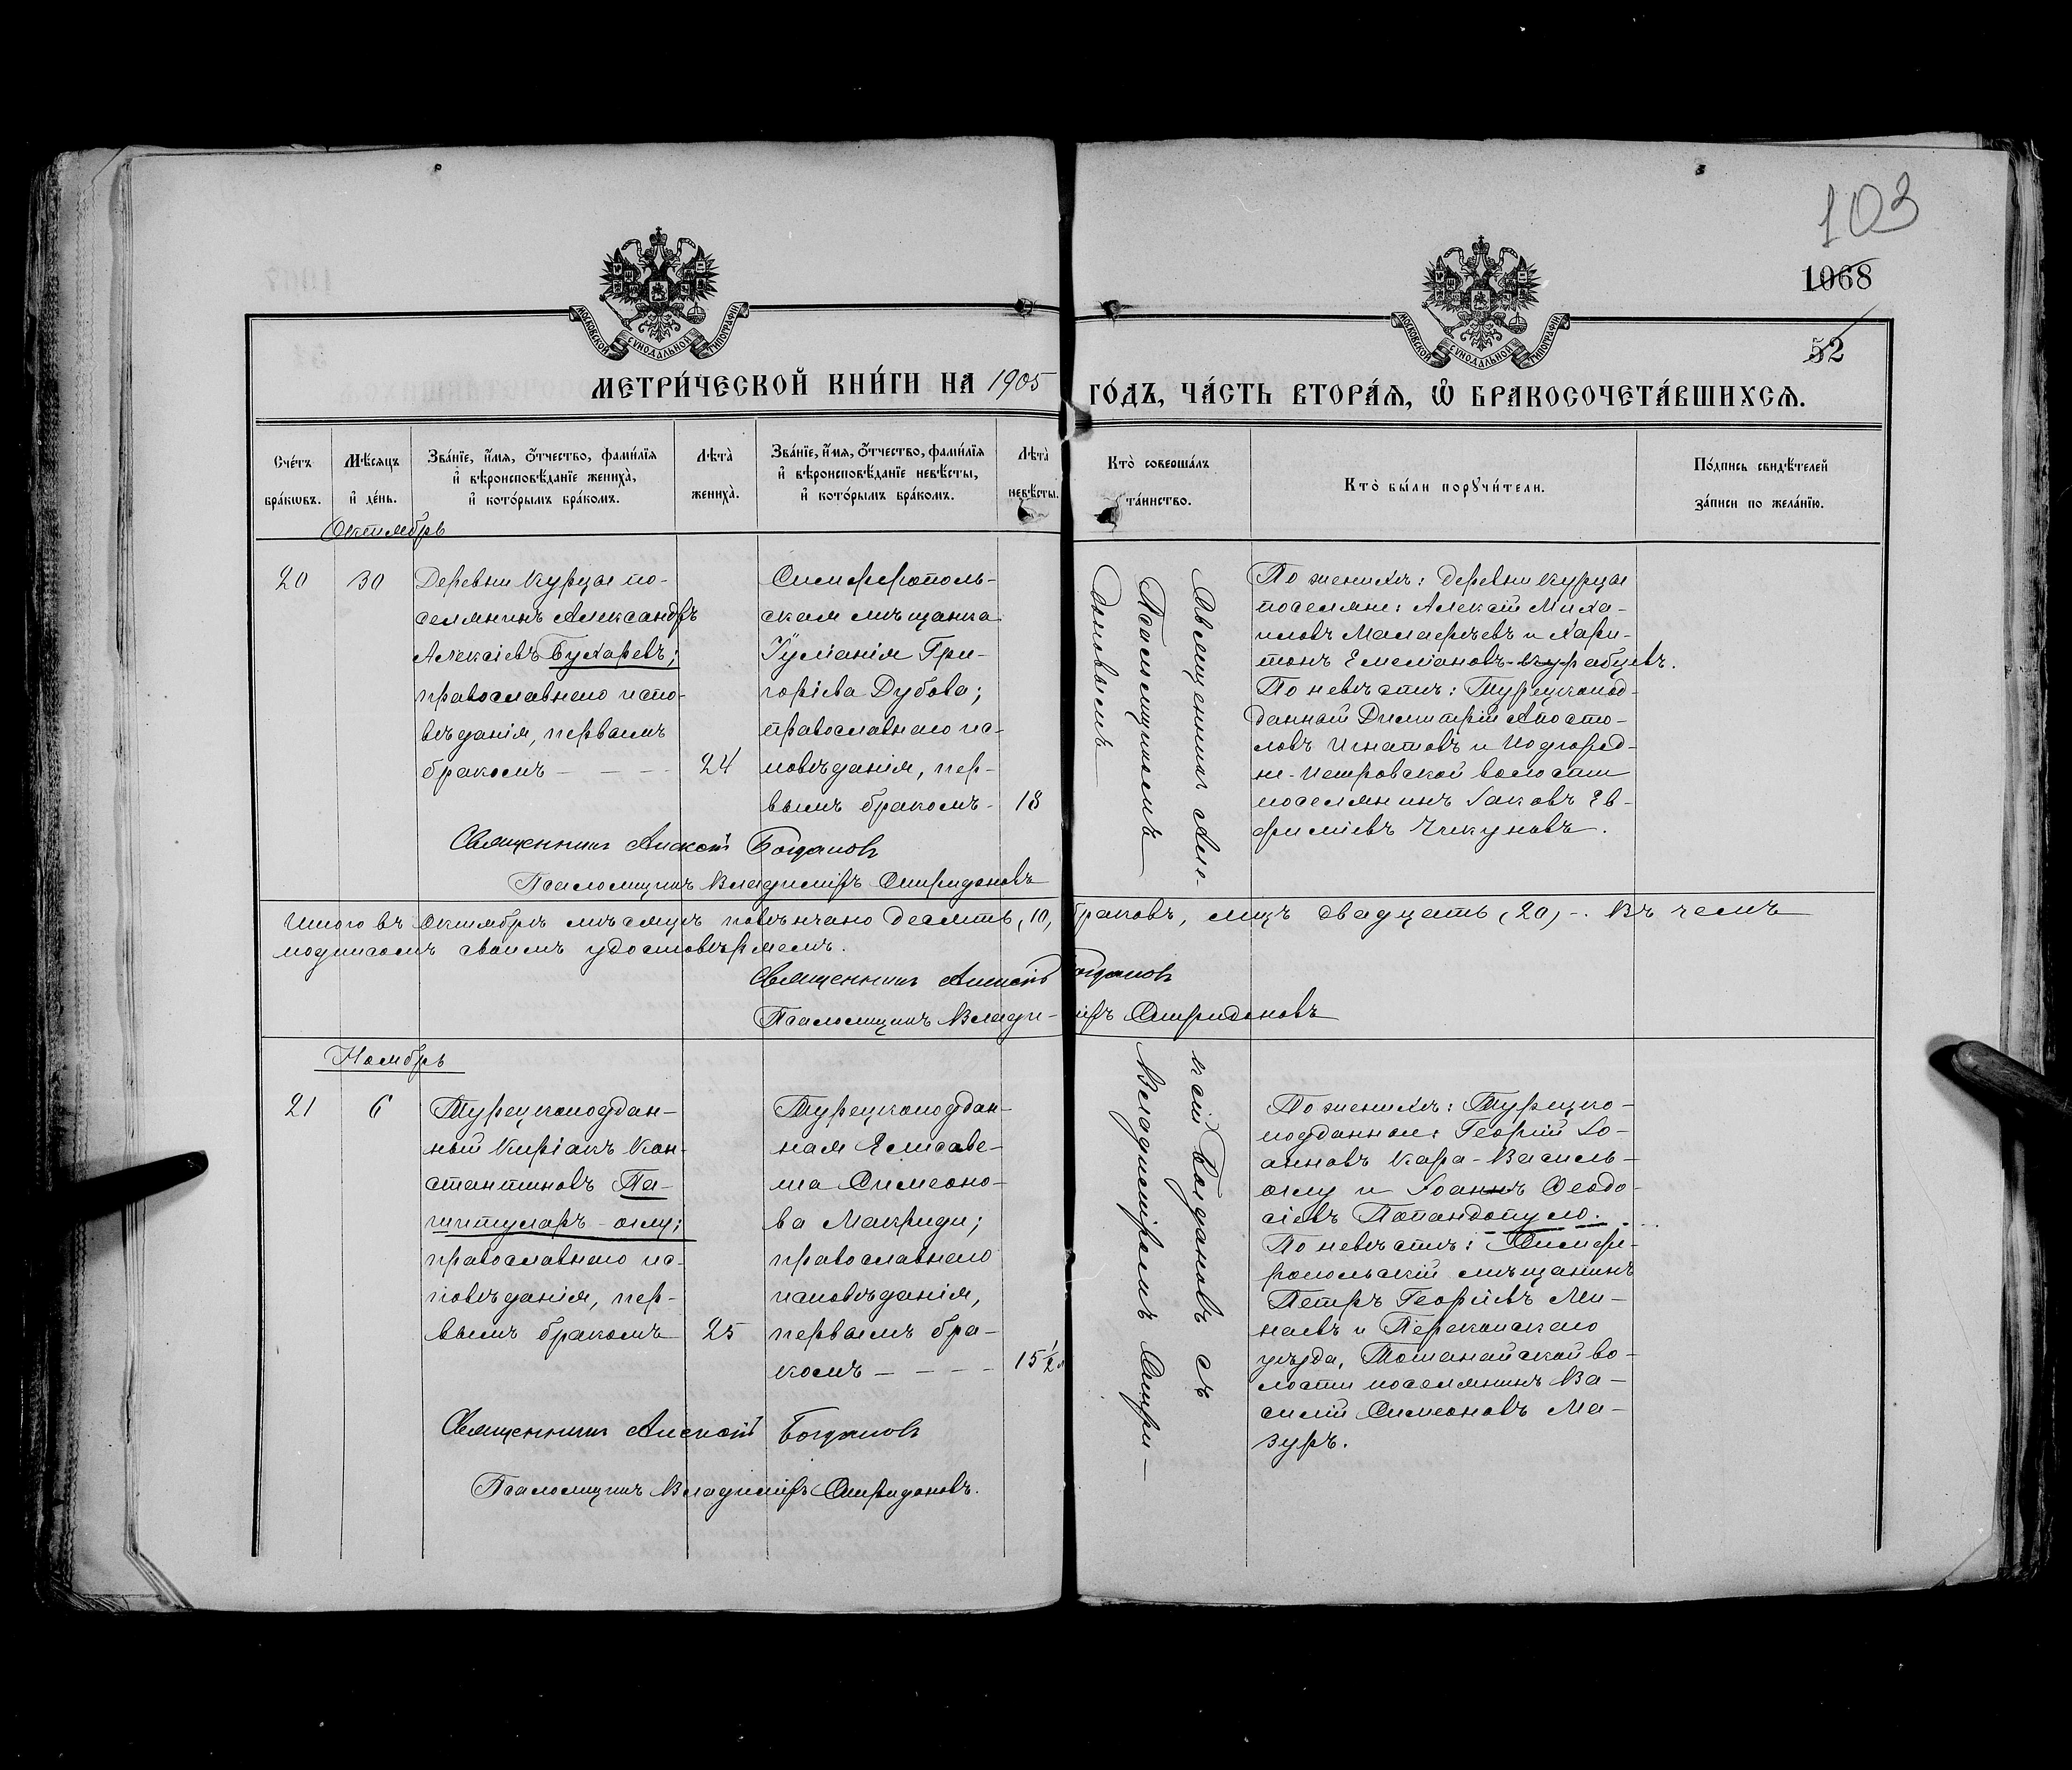 103
1068
52
МОСКОВСКОЙ СѴНОДАЛЬНОЙ ТИПОГРАФІИ
МОСКОВСКОЙ СѴНОДАЛЬНОЙ ТИПОГРАФІИ
МЕТРИ́ЧЕСКОЙ КНИ́ГИ НА 1905 ГО́ДЪ, ЧА́СТЬ ВТОРА́Я, Ѽ БРАКОСОЧЕТА́ВШИХСЯ.
Сче́тъ
бра́ковъ.
Мѣ́сяцъ
и҆ де́нь.
Зва́нїе, и҆́мя, ѻ҆́тчество, фами́лїя
и҆ вѣроисповѣ́данїе жениха̀,
и҆ кото́рымъ бра́комъ.
Лѣта̀
жениха̀.
Зва́нїе, и҆́мя, ѻ҆́тчество, фами́лїя
и҆ вѣроисповѣ́данїе невѣ́сты,
и҆ кото́рымъ бра́комъ.
Лѣта̀
невѣ́сты.
Кто̀ соверша́лъ
та́инство.
Кто̀ бы́ли порꙋчи́тели.
По́дпись свидѣ́телей
за́писи по жела́нїю.
Октябрь
20
30
Деревни Курцы по-
селянинъ Александръ
Алексіевъ Бухаревъ;
православнаго испо-
вѣданія, первымъ
бракомъ - - - -
24
Симферополь-
ская мѣщанка
Іуліанія Гри-
горіева Дубова;
православнаго ис-
повѣданія, пер-
вымъ бракомъ -
18
Священникъ Але-
Псаломщикомъ
доновымъ
По женихѣ: деревни Курцы
поселяне: Алексій Миха-
иловъ Малафѣевъ и Хари-
тонъ Емеліановъ Курабцевъ.
По невѣстѣ: Турецкопод-
данный Димитрій Апосто-
ловъ Игнатовъ и Подгород-
не-Петровской волости
поселянинъ Іаковъ Ев-
фиміевъ Чикуновъ.
Священникъ Алексій Богдановъ
Псаломщикъ Владиміръ Спиридоновъ
Итого въ Октябрѣ мѣсяцѣ повѣнчано десять (10) браковъ, лицъ двадцать (20) -. Въ чемъ
подписомъ своимъ удостовѣряемъ.
Священникъ Алексій Богдановъ
Псаломщикъ Владиміръ Спиридоновъ
Ноябрь
21
6
Турецкоподдан-
ный Киріакъ Кон-
стантиновъ Па-
шитуларъ-оглу;
православнаго ис-
повѣданія, пер-
вымъ бракомъ
25
Турецкоподдан-
ная Елисаве-
та Симеоно-
ва Макриди;
православнаго
исповѣданія,
первымъ бра-
комъ - - - -
15 1/2
ксій Богдановъ съ
Владиміромъ Спири-
По женихѣ: Турецко-
подданные: Георгій Іо-
анновъ Кара-Василь-
оглу и Іоаннъ Ѳеодо-
сіевъ Попандопуло.
По невѣстѣ: Симфе-
ропольскій мѣщанинъ
Петръ Георгіевъ Ми-
наевъ и Перекопскаго
уѣзда, Тотанайской во-
лости поселянинъ Ва-
силій Симеоновъ Ма-
зуръ.
Священникъ Алексій Богдановъ
Псаломщикъ Владиміръ Спиридоновъ.